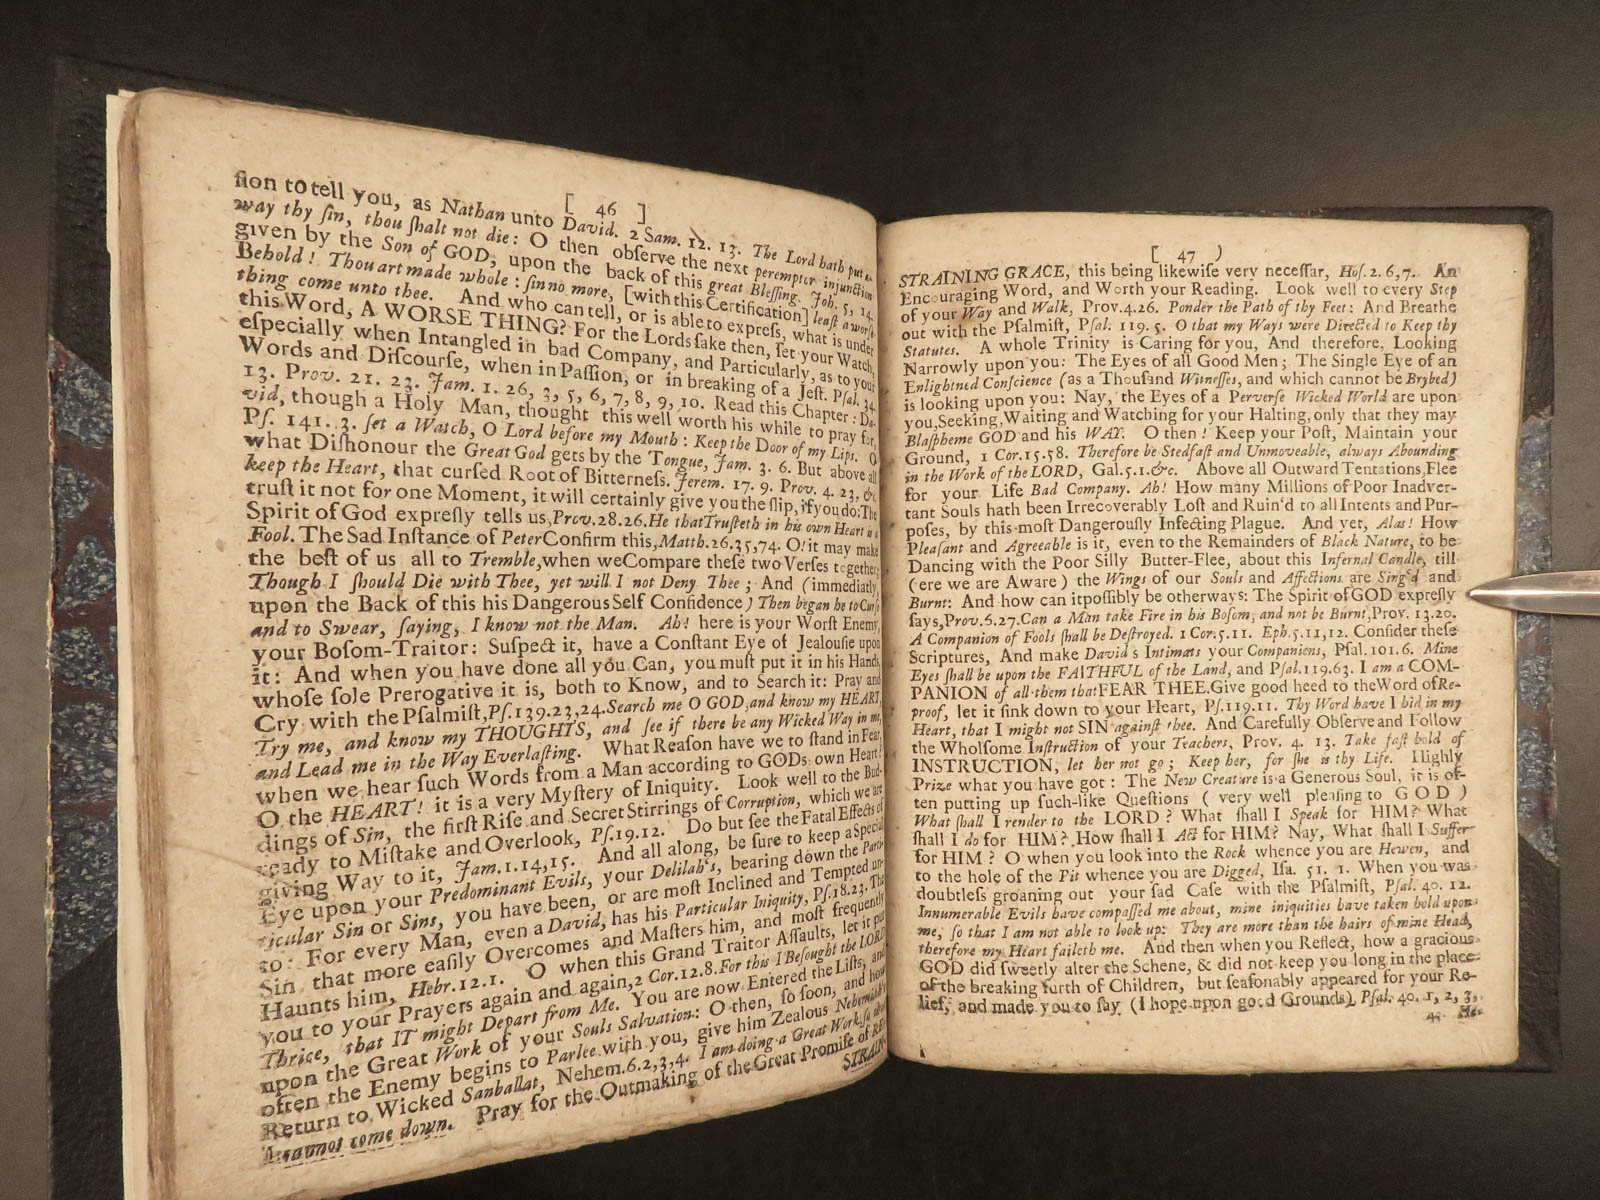 [ 46 ]
ſion to tell you, as Nathan unto David. 2 Sam. 12. 13. The Lord hath put a-
way thy ſin, thou ſhalt not die: O then obſerve the next peremptor injunction
given by the Son of GOD, upon the back of this great Bleſſing. Joh. 5, 14.
Behold! Thou art made whole: ſin no more, [with this Certification] leaſt a worſe
thing come unto thee. And who can tell, or is able to expreſs, what is under
this Word, A WORSE THING? For the Lords ſake then, ſet your Watch,
eſpecially when Intangled in bad Company, and Particularly, as to your
Words and Diſcourſe, when in Paſſion, or in breaking of a Jeſt. Pſal. 34.
13. Prov. 21. 23. Jam. 1. 26, 3, 5, 6, 7, 8, 9, 10. Read this Chapter: Da-
vid, though a Holy Man, thought this well worth his while to pray for,
Pſ. 141. 3. ſet a Watch, O Lord before my Mouth: Keep the Door of my Lips. O
what Diſhonour the Great God gets by the Tongue, Jam. 3. 6. But above all
keep the Heart, that curſed Root of Bitterneſs. Jerem. 17. 9. Prov. 4. 23, &c.
truſt it not for one Moment, it will certainly give you the ſlip, if you do: The
Spirit of God expreſly tells us, Prov. 28. 26. He that Truſteth in his own Heart is a
Fool. The Sad Inſtance of Peter Confirm this, Matth. 26. 35, 74. O! it may make
the beſt of us all to Tremble, when we Compare theſe two Verſes together;
Though I ſhould Die with Thee, yet will I not Deny Thee; And (immediatly
upon the Back of this his Dangerous Self Confidence) Then began he to Curſe
and to Swear, ſaying, I know not the Man. Ah! here is your Worſt Enemy,
your Boſom-Traitor: Suſpect it, have a Conſtant Eye of Jealouſie upon
it: And when you have done all you Can, you muſt put it in his Hands,
whoſe ſole Prerogative it is, both to Know, and to Search it: Pray and
Cry with the Pſalmiſt, Pſ. 139. 23, 24. Search me O GOD, and know my HEART,
Try me, and know my THOUGHTS, and ſee if there be any Wicked Way in me,
and Lead me in the Way Everlaſting. What Reaſon have we to ſtand in Fear,
when we hear ſuch Words from a Man according to GODs own Heart?
O the HEART! it is a very Myſtery of Iniquity. Look well to the Bud-
dings of Sin, the firſt Riſe and Secret Stirrings of Corruption, which we are
ready to Miſtake and Overlook, Pſ. 19. 12. Do but ſee the Fatal Effects of
giving Way to it, Jam. 1. 14, 15. And all along, be ſure to keep a Special
Eye upon your Predominant Evils, your Delilah's, bearing down the Parti-
ticular Sin or Sins, you have been, or are moſt Inclined and Tempted un-
to: For every Man, even a David, has his Particular Iniquity, Pſ. 18. 23. The
Sin that more eaſily Overcomes and Maſters him, and moſt frequently
Haunts him, Hebr. 12. 1. O when this Grand Traitor Aſſaults, let it put
you to your Prayers again and again, 2 Cor. 12. 8. For this I Beſought the LORD
Thrice, that IT might Depart from Me. You are now Entered the Liſts, and
upon the Great Work of your Souls Salvation: O then, ſo ſoon, and how
often the Enemy begins to Parlee with you, give him Zealous Nehemiah's
Return to Wicked Sanballat, Nehem. 6. 2, 3, 4. I am doing a Great Work, ſo that
I cannot come down. Pray for the Outmaking of the Great Promiſe of RE-
STRAIN-
[ 47 )
STRAINING GRACE, this being likewiſe very neceſſar, Hoſ. 2. 6, 7. An
Encouraging Word, and Worth your Reading. Look well to every Step
of your Way and Walk, Prov. 4. 26. Ponder the Path of thy Feet: And Breathe
out with the Pſalmiſt, Pſal. 119. 5. O that my Ways were Directed to Keep thy
Statutes. A whole Trinity is Caring for you, And therefore, Looking
Narrowly upon you: The Eyes of all Good Men; The Single Eye of an
Enlightned Conſcience (as a Thouſand Witneſſes, and which cannot be Brybed)
is looking upon you: Nay, the Eyes of a Perverſe Wicked World are upon
you, Seeking, Waiting and Watching for your Halting, only that they may
Blaſpheme GOD and his WAY. O then! Keep your Poſt, Maintain your
Ground, 1 Cor. 15. 58. Therefore be Stedfaſt and Unmoveable, always Abounding
in the Work of the LORD, Gal. 5. 1. &c. Above all Outward Tentations, Flee
for your Life Bad Company. Ah! How many Millions of Poor Inadver-
tant Souls hath been Irrecoverably Loſt and Ruin'd to all Intents and Pur-
poſes, by this moſt Dangerouſly Infecting Plague. And yet, Alas! How
Pleaſant and Agreeable is it, even to the Remainders of Black Nature, to be
Dancing with the Poor Silly Butter-Flee, about this Infernal Candle, till
(ere we are Aware) the Wings of our Souls and Affections are Sing'd and
Burnt: And how can it poſſibly be otherways: The Spirit of GOD expreſly
ſays, Prov. 6. 27. Can a Man take Fire in his Boſom, and not be Burnt, Prov. 13. 20.
A Companion of Fools ſhall be Deſtroyed. 1 Cor. 5. 11. Eph. 5. 11, 12. Conſider theſe
Scriptures, And make David's Intimats your Companions, Pſal. 101. 6. Mine
Eyes ſhall be upon the FAITHFUL of the Land, and Pſal. 119. 63. I am a COM-
PANION of all them that FEAR THEE. Give good heed to the Word of Re-
proof, let it ſink down to your Heart, Pſ. 119. 11. Thy Word have I hid in my
Heart, that I might not SIN againſt thee. And Carefully Obſerve and Follow
the Wholſome Inſtruction of your Teachers, Prov. 4. 13. Take faſt hold of
INSTRUCTION, let her not go; Keep her, for ſhe is thy Life. Highly
Prize what you have got: The New Creature is a Generous Soul, it is of-
ten putting up ſuch-like Queſtions ( very well pleaſing to GOD )
What ſhall I render to the LORD? What ſhall I Speak for HIM? What
ſhall I do for HIM? How ſhall I Act for HIM? Nay, What ſhall I Suffer
for HIM? O when you look into the Rock whence you are Hewen, and
to the hole of the Pit whence you are Digged, Iſa. 51. 1. When you was
doubtleſs groaning out your ſad Caſe with the Pſalmiſt, Pſal. 40. 12.
Innumerable Evils have compaſſed me about, mine iniquities have taken hold upon
me, ſo that I am not able to look up: They are more than the hairs of mine Head,
therefore my Heart faileth me. And then when you Reflect, how a gracious
GOD did ſweetly alter the Schene, & did not keep you long in the place
of the breaking furth of Children, but ſeaſonably appeared for your Re-
lief, and made you to ſay (I hope upon good Grounds) Pſal. 40. 1, 2, 3,
4. He